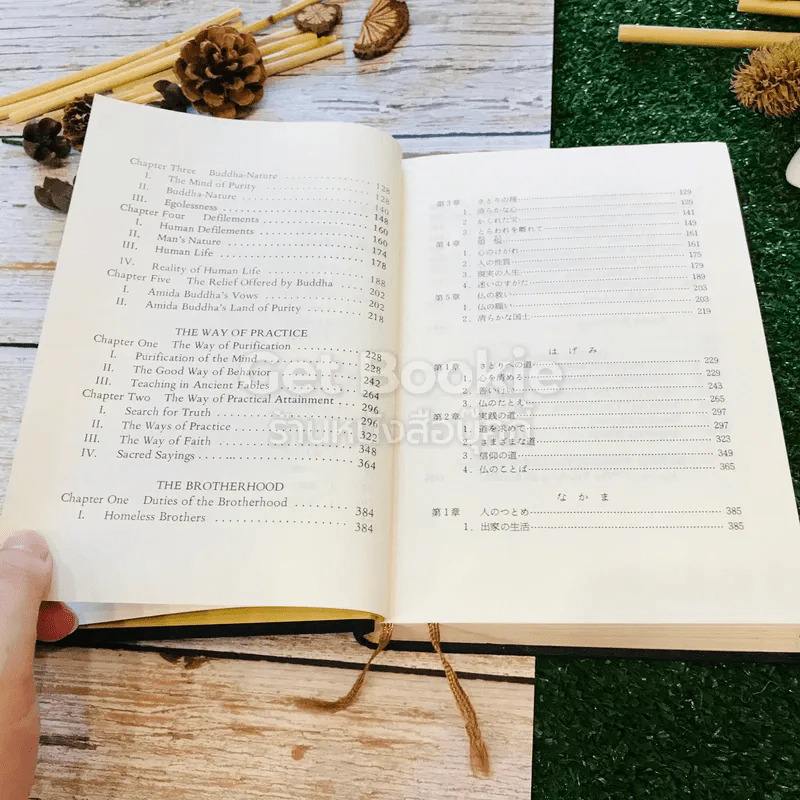 Chapter Three Buddha-Nature ........ 128
I. The Mind of Purity ........ 128
II. Buddha-Nature ........ 140
III. Egolessness ........ 148
Chapter Four Defilements ........ 160
I. Human Defilements ........ 160
II. Man's Nature ........ 174
III. Human Life ........ 178
IV. Reality of Human Life ........ 188
Chapter Five The Relief Offered by Buddha ........ 202
I. Amida Buddha's Vows ........ 202
II. Amida Buddha's Land of Purity ........ 218
THE WAY OF PRACTICE
Chapter One The Way of Purification ........ 228
I. Purification of the Mind ........ 228
II. The Good Way of Behavior ........ 242
III. Teaching in Ancient Fables ........ 264
Chapter Two The Way of Practical Attainment ........ 296
I. Search for Truth ........ 296
II. The Ways of Practice ........ 322
III. The Way of Faith ........ 348
IV. Sacred Sayings ........ 364
THE BROTHERHOOD
Chapter One Duties of the Brotherhood ........ 384
I. Homeless Brothers ........ 384
第3章 さとりの種 ........ 129
1. 清らかな心 ........ 129
2. かくれた宝 ........ 141
3. とらわれを離れて ........ 149
第4章 煩悩 ........ 161
1. 心のけがれ ........ 161
2. 人の性質 ........ 175
3. 現実の人生 ........ 179
4. 迷いのすがた ........ 189
第5章 仏の救い ........ 203
1. 仏の願い ........ 203
2. 清らかな国土 ........ 219
はげみ
第1章 さとりへの道 ........ 229
1. 心を清める ........ 229
2. 善い行い ........ 243
3. 仏のたとえ ........ 265
第2章 実践の道 ........ 297
1. 道を求めて ........ 297
2. さまざまな道 ........ 323
3. 信仰の道 ........ 349
4. 仏のことば ........ 365
なかま
第1章 人のつとめ ........ 385
1. 出家の生活 ........ 385
Get Bookie
ร้านหนังสือบุ๊คกี้